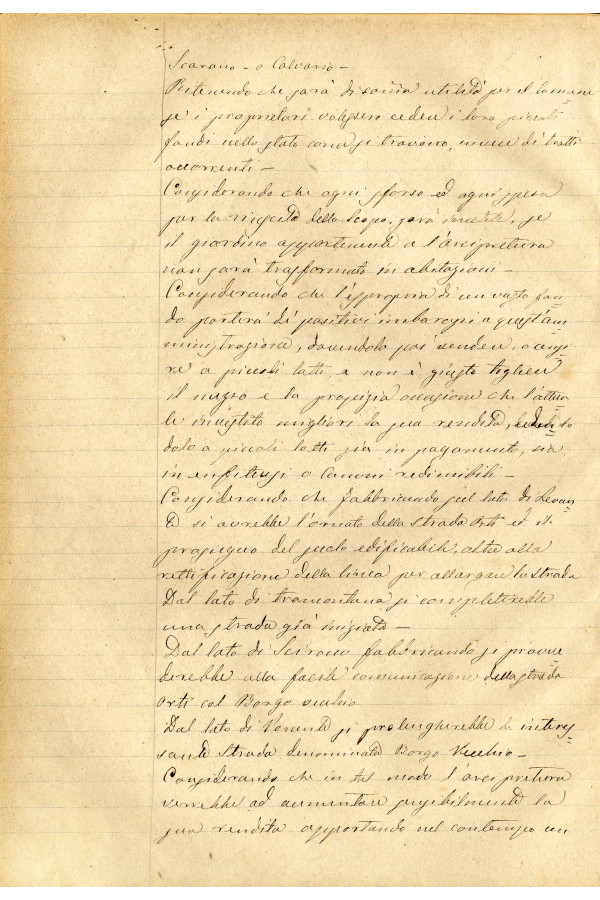 Scarano - o Calvario -
Ritenendo che sarà di somma utilità per il Comune
se i proprietari volessero cedere i loro presenti
fondi nello stato come si trovano, invece di tratti
occorrenti -
Considerando che ogni sforzo ed ogni spesa
per la riuscita dello scopo, sarà inutile, se
il giardino appartenente a l'arcipretura
non sarà trasformato in abitazioni -
Considerando che l'espropria di un vasto fon=
do porterà dé positivi imbarazzi a quest'am
ministrazione, dovendolo poi vendere, o cens=
re a piccoli lotti, e non è giusto togliere
il mezzo e la propizia occasione che l'attua
le investito migliori la sua rendita,
dolo a piccoli lotti già in pagamento, sia
in enfiteusi o canoni redimibili -
Considerando che fabbricando sul lato di Levan=
te si avrebbe l'ornato della strada Orti ed il
prosieguo del suolo edificabile, oltre alla
rettificazione della linea per allargare la strada
Dal lato di tramontana si completerebbe
una strada già iniziata -
Dal lato di Scirocco fabbricando si provve
derebbe alla facile comunicazione della strada
Orti col Borgo vecchio
Dal lato di Ponente si prolungherebbe la interes=
sante strada denominata Borgo Vecchio -
Considerando che in tal modo l'arcipretura
verrebbe ad aumentare sensibilmente la
sua rendita apportando nel contempo un